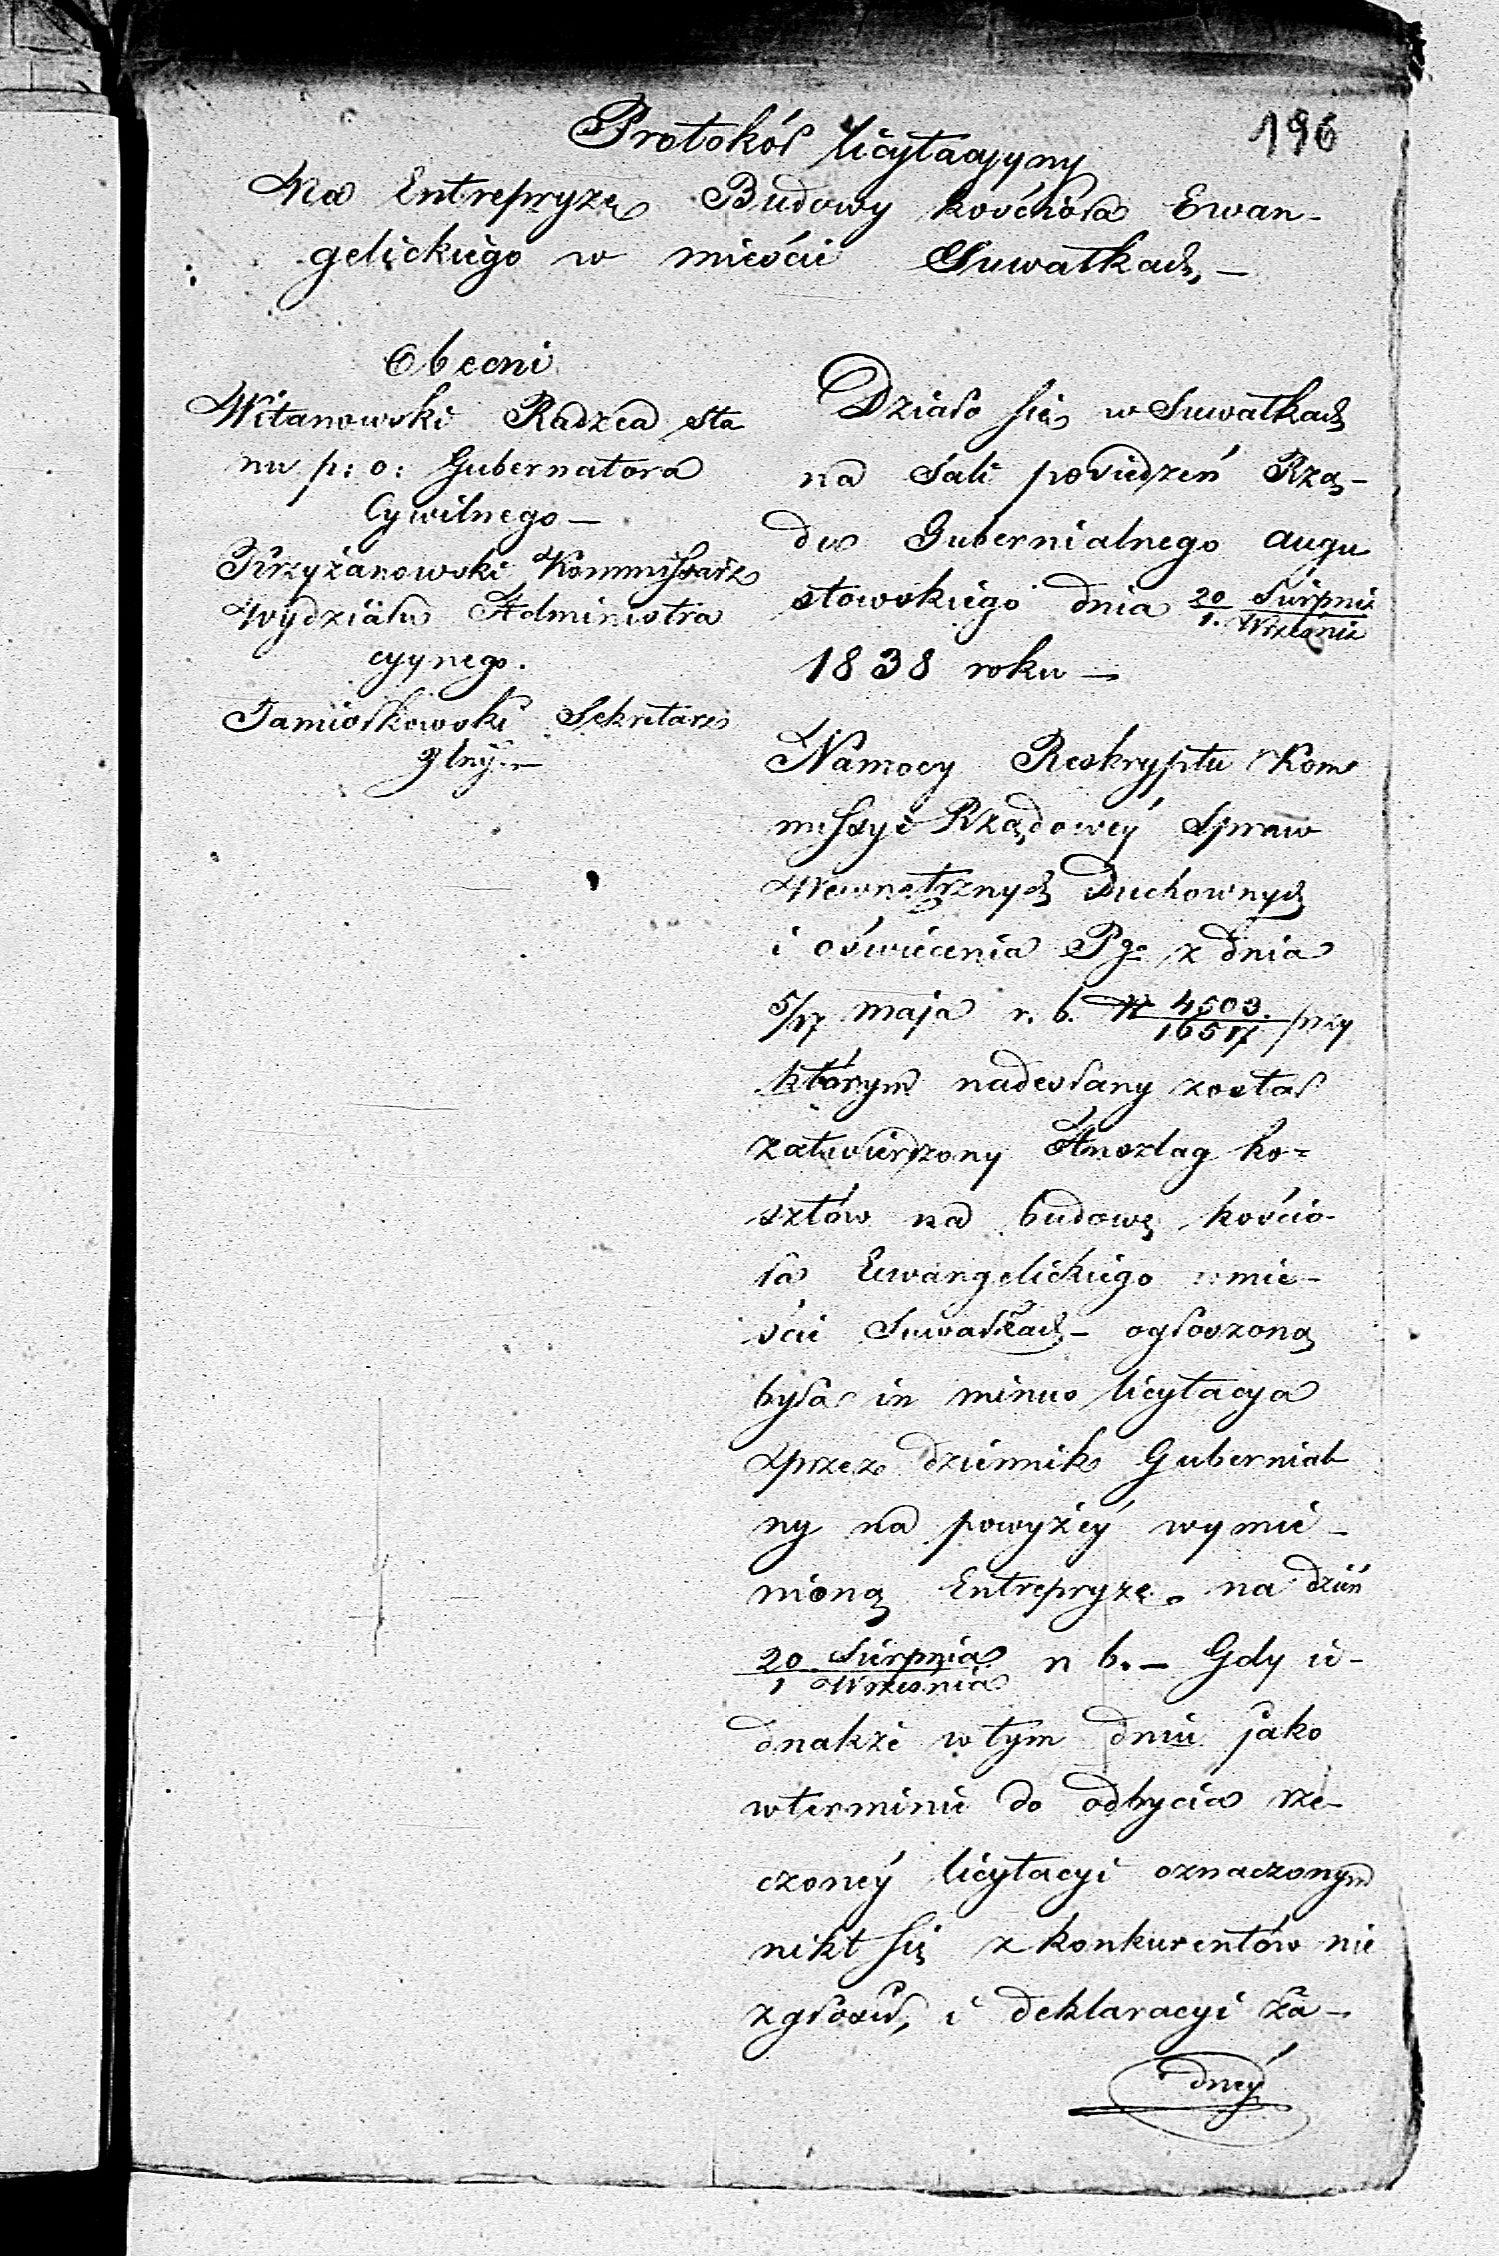 196
Protokół licytacyjny
Na Entrepryzę Budowy kościoła Ewan-
gelickiego w mieście Suwałkach, —
Obecni
Witanowski Radzca Sta
nu p: o: Gubernatora
Cywilnego —
Krzyżanowski Kommissarz
Wydziału Administra
cyynego.
Jamiołkowski Sekretarz
Glny. —
Działo się w Suwałkach
na Sali posiedzeń Rzą-
du Gubernialnego augu
stowskiego dnia 20 Sierpnia / 1. Września
1838 roku —
Namocy Reskryptu Kom
missyi Rządowéy Spraw
Wewnętrznych Duchownych
i oświécenia Pgo z dnia
5/17 maja r. b. N 4503. / 16517 przy
którym nadesłany został
zatwierdzony Anszlag ko=
sztów na budowę kościo-
ła Ewangelickiego w mie-
ście Suwałkach — ogłoszoną
była in minus licytacya
przez dziennik Gubernial-
ny na powyżéy wymie-
nioną Entrepryzę na dzień
20 Sierpnia / 1 Września r. b. — Gdy ie-
dnakże w tym dniu jako
w terminie do odbycia rze-
czonéy licytacyi oznaczonym
nikt się z konkurentów nie
zgłosił, i deklaracyi ża-
dnéy